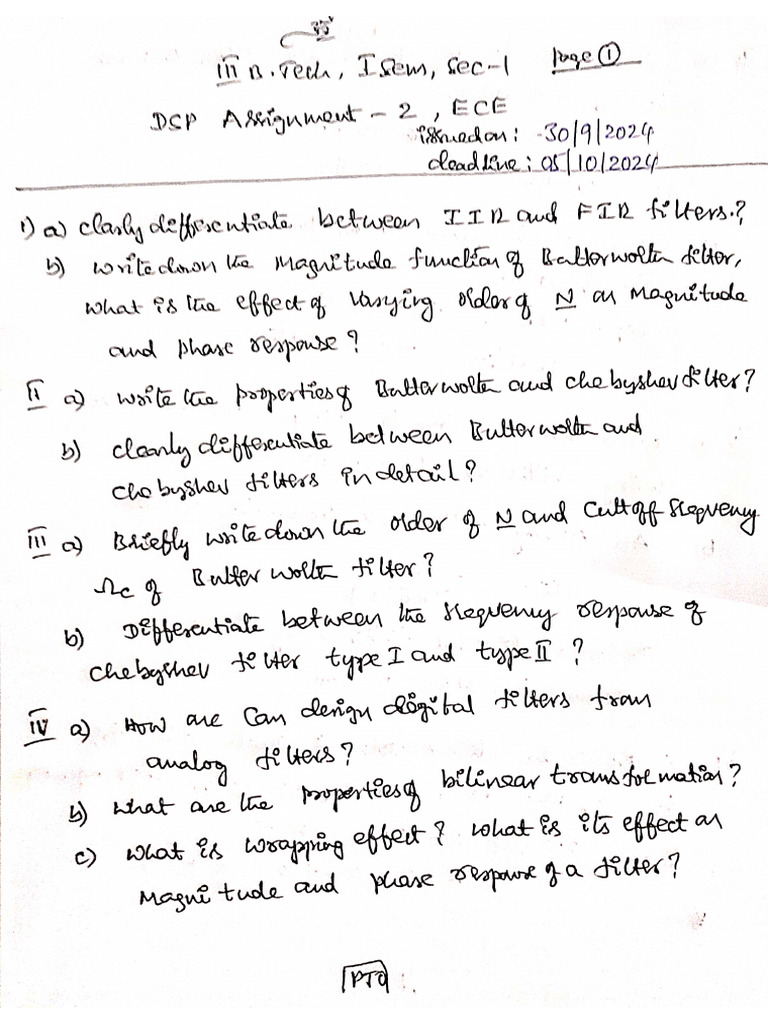 III B.Tech, I sem, sec-1 Page ①
DSP Assignment - 2, ECE
issued on: 30/9/2024
deadline: 05/10/2024
1) a) Clearly differentiate between IIR and FIR filters.?
b) write down the Magnitude function of Butterworth filter,
what is the effect of varying order of N on Magnitude
and phase response?
II a) write the properties of Butterworth and chebyshev filter?
b) clearly differentiate between Butterworth and
chebyshev filters in detail?
III a) Briefly write down the order of N and Cutt off frequency
Ωc of Butter worth filter?
b) Differentiate between the frequency response of
chebyshev filter type I and type II ?
IV a) How are can design digital filters from
analog filters?
b) what are the properties of bilinear transformation?
c) what is wrapping effect? what is its effect on
Magnitude and phase response of a filter?
PTO